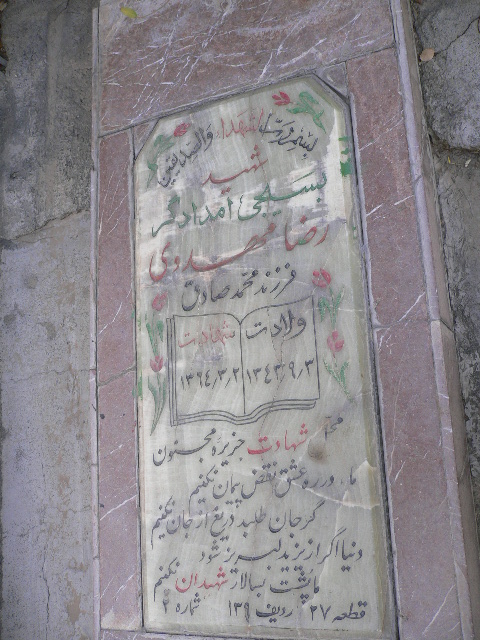 بسم رب الشهدا والصدیقین
شهید
بسیجی امدادگر
رضا مهدوی
فرزند محمد صادق
ولادت شهادت
۱۳۴۳/۹/۳ ۱۳۶۴/۳/۲
محل شهادت جزیره مجنون
ما در ره عشق نقض پیمان نکنیم
گر جان طلبد دریغ از جان نکنیم
دنیا اگر از یزید لبریز شود
ما پشت بسالار شهیدان نکنیم
قطعه ۲۷ ردیف ۱۳۹ شماره ۲